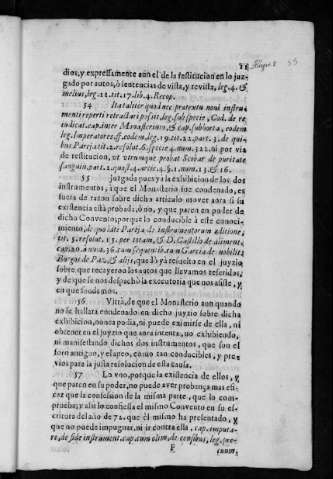 dios, y expressamente aun el de la restitucion en lo juz-
gado por autos, ò sentencias de vista, y revista, leg. 4. &
melius, leg. 22. tit. 17. lib. 4. Recop.
54 Ita taliter quod nec pretextu novi instru-
menti reperti retractari possit, leg. sub specie, Cod. de re-
iudicat. cap. inter Monasterium, & cap. suborta, eodem
leg. Imperatores ff. eodem, leg. 19. tit. 22. part. 3.
tit. 2. resolut. 6. specie 4. num. 322. ni por via
de restitucion, ut utrumque probat Scobar de puritate
sanguin. part. 2. quæst. 4. artic. 4. §. 1. num. 13. & 16.
55 juzgada pues ya la exhibicion de los dos
instrumentos, à que el Monasterio fue condenado, es
fuera de razon sobre dicho articulo mover aora si su
existencia està probada, ò no, y que paren en poder de
dicho Convento; porque lo conducible à este conoci-
miento, de potestate Partija de instrumentorum editione,
tit. 5. resolut. 13. per totam, & D. Castillo de aliment.
cap. no. num. 36. Garcia de nobilit.
Burgos de Paz, & alijs, que
sobre que recayeron los autos que llevamos referidos,
y de que se nos despachò la executoria que nos assiste, y
en que fundemos.
56. Vltrà, de que el Monasterio aun quando
no se hallara condenado en dicho juyzio sobre dicha
exhibicion, nunca podia, ni puede eximirse de ella, ni
obtener en el juyzio que aora intenta, no exhibiendo,
ni manifestando dichos dos instrumentos, que son el
foro antiguo, y el apeo, como tan conducibles, y pre-
vios para la justa resolucion de esta causa.
57 Lo vno, porque la existencia de ellos, y
que paren en su poder, no puede aver probança mas efi-
caz que la confession de la misma parte, que lo com-
prueba; y assi lo confiessa el mismo Convento en su es-
critura del año de 72. que èl mismo ha presentado, y
que no puede impugnar, ni ir contra ella, cap. imputa-
re, de fide instrument. cap. cum olim, de censibus, leg.
F